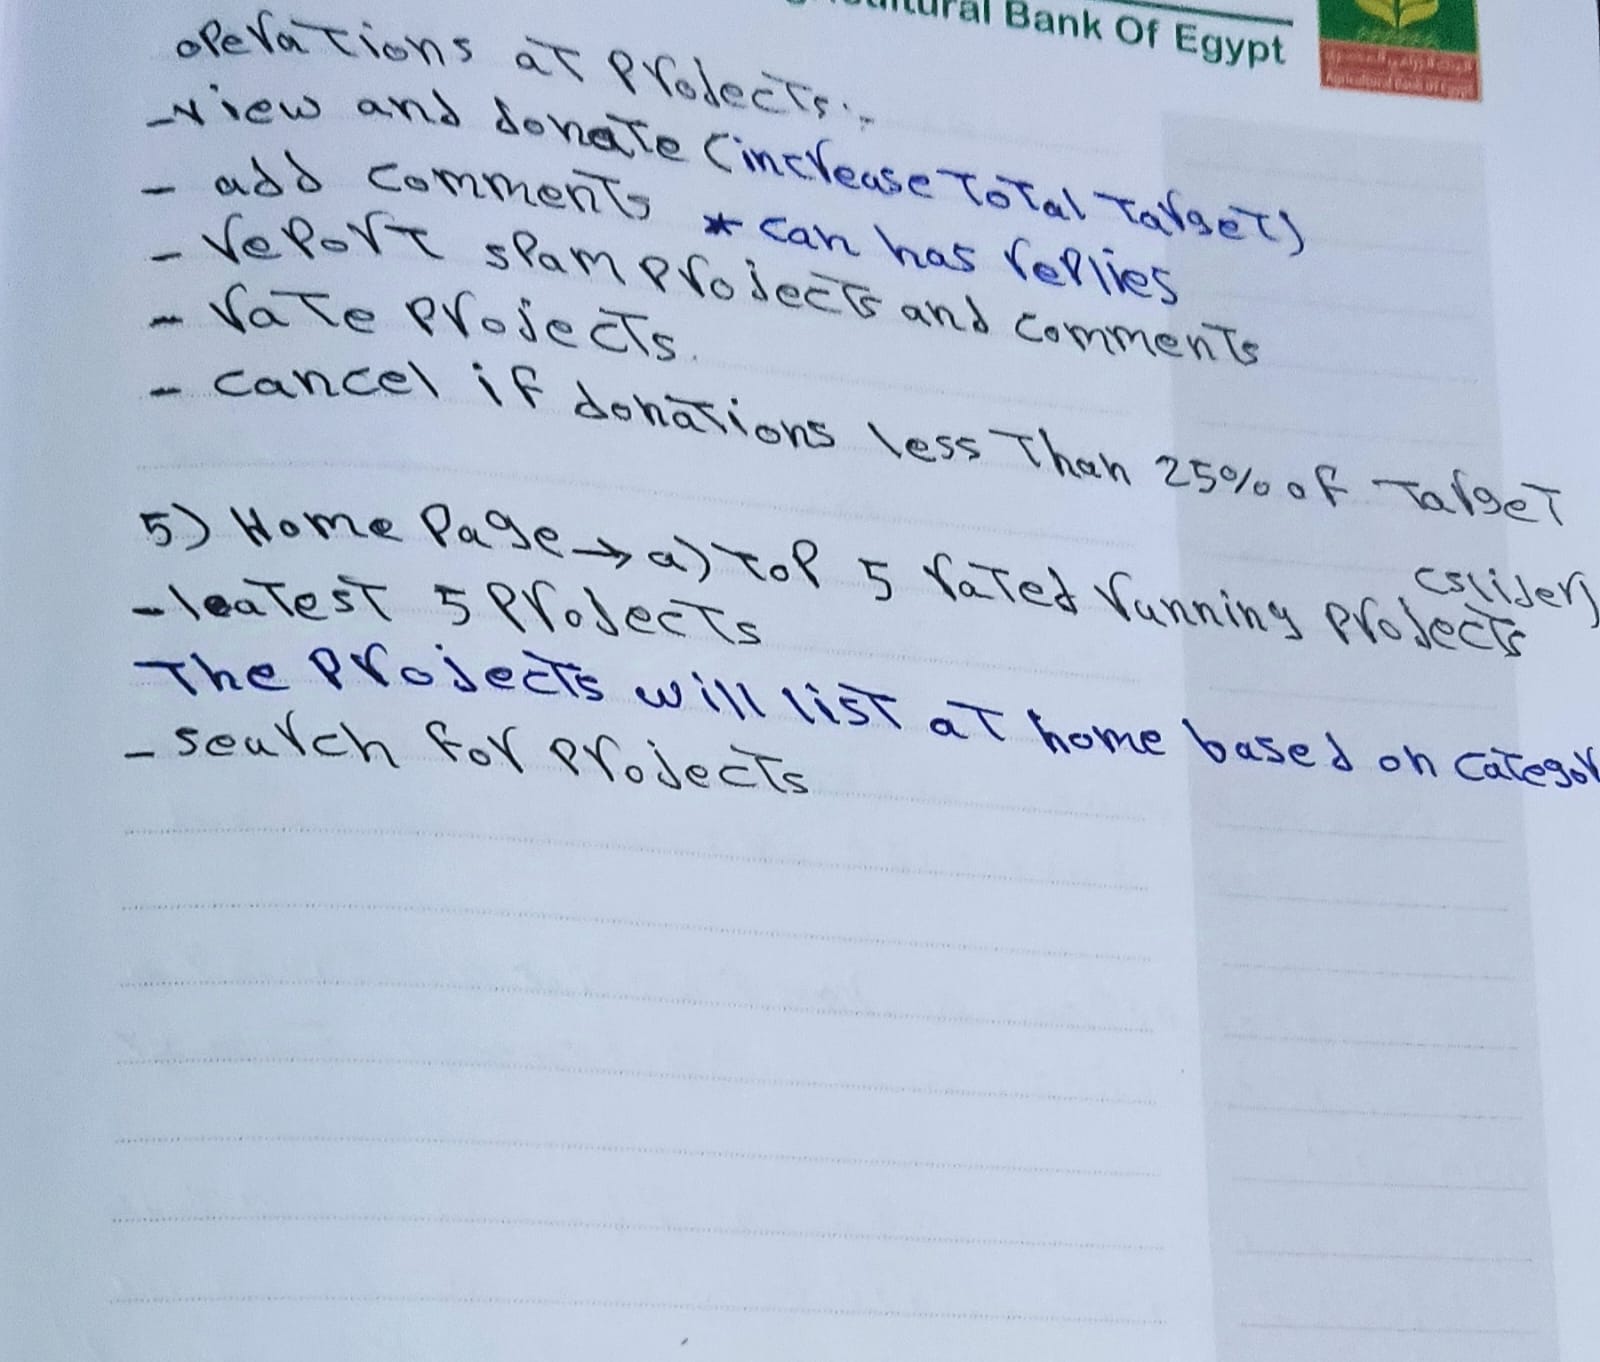 Bank Of Egypt
Agricultural Bank of Egypt
operations at projects:-
- view and donate (increase total target)
- add comments * can has replies
- report spam projects and comments
- rate projects.
- cancel if donations less than 25% of target
5) Home Page → a) top 5 rated running projects (slider)
- leatest 5 projects
The projects will list at home based on categor
- search for projects